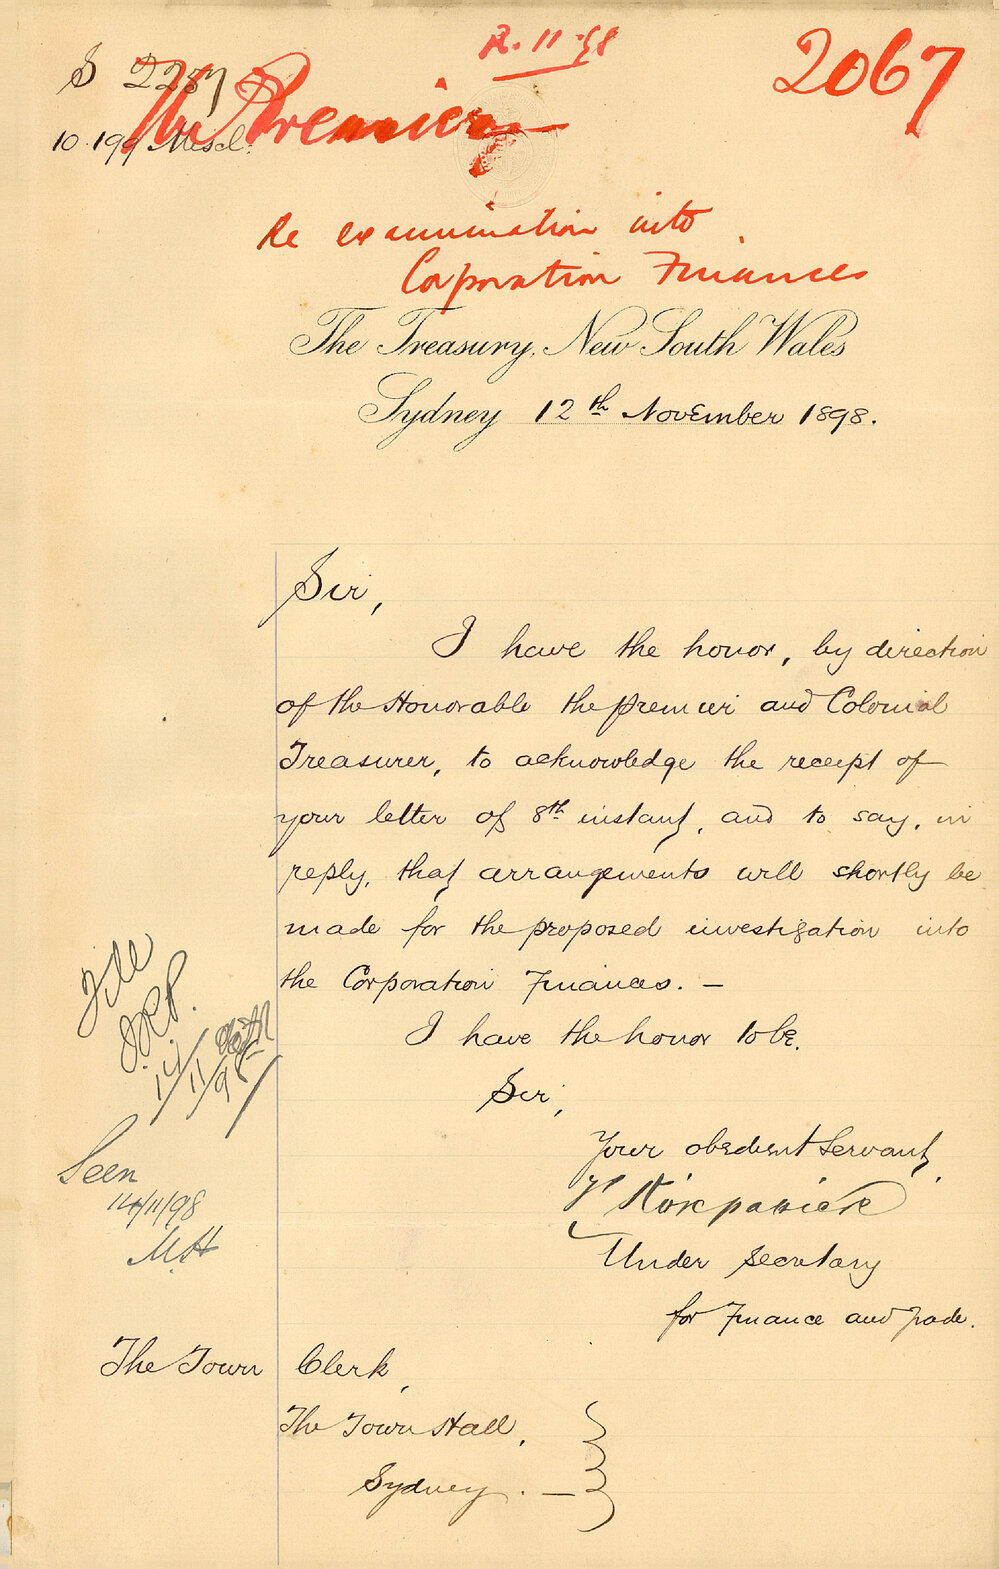 S 2287
10.199 Miscl.
2.11.98
2067
The Premier
Re examination into
Corporation Finances
The Treasury, New South Wales
Sydney 12th November 1898.
Sir,
I have the honor, by direction
of the Honorable the premier and Colonial
Treasurer, to acknowledge the receipt of
your letter of 8th instant, and to say, in
reply, that arrangements will shortly be
made for the proposed investigation into
the Corporation Finances. —
I have the honor to be,
Sir,
Your obedient Servant,
Kirkpatrick
Under Secretary
for Finance and Trade.
File
14/11/98
Seen
14/11/98
M.H
The Town Clerk,
The Town Hall,
Sydney. —